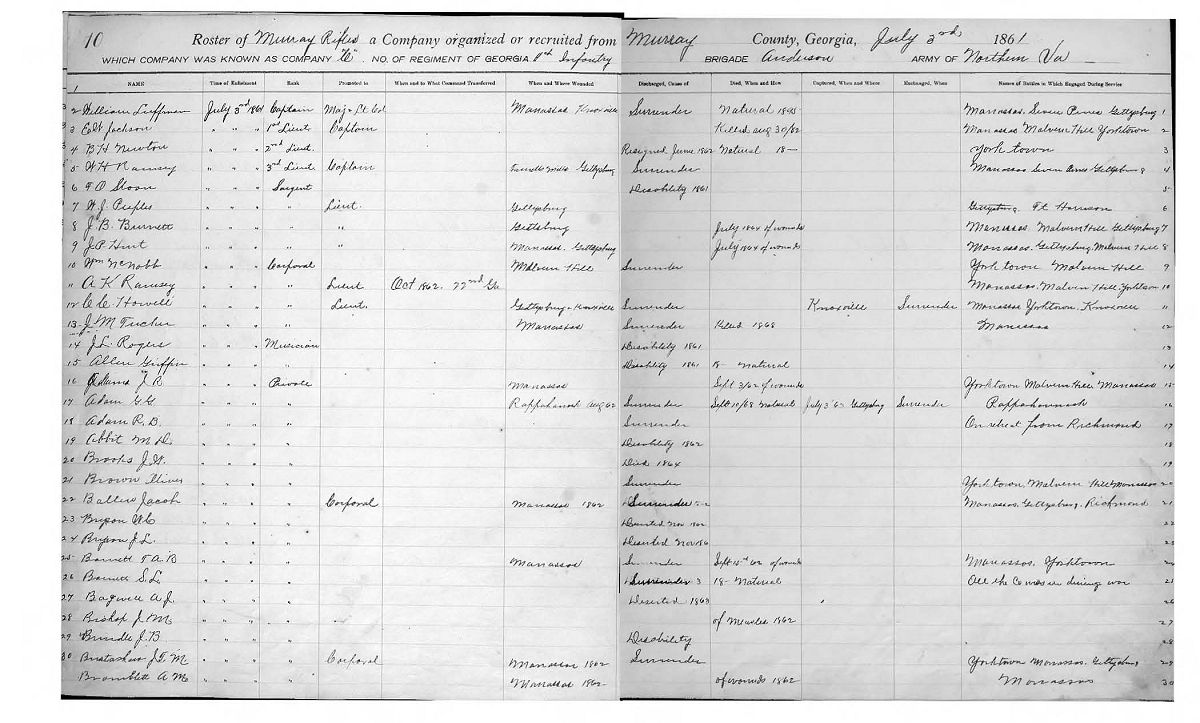 10 Roster of Murray Rifles a Company organized or recruited from Murray County, Georgia, July 3rd, 1861
WHICH COMPANY WAS KNOWN AS COMPANY "C" NO. OF REGIMENT OF GEORGIA Infantry BRIGADE Anderson ARMY OF Northern Va
NAME Time of Enlistment Rank Promoted to When and to What Command Transferred When and Where Wounded Discharged, Cause of Died, When and How Captured, When and Where Exchanged, When Names of Battles in Which Engaged During Service
1
2 William Luffman July 3rd 1861 Captain Maj & Lt Col Manassas Knoxville Surrender Natural Manassas. Seven Pines Gettysburg 1
3 Jackson " " " 1st Lieut Captain Killed Aug 30/62 Manassas Malvern Hill Yorktown 2
4 B H Newton " " " 2nd Lieut. Resigned June 1862 Natural 18— York town 3
5 W H Ramsey " " " 3rd Lieut Captain Gettysburg Surrender Manassas Seven Pines Gettysburg 4
6 Sloan " " " Sargent Disability 1861 5
7 W. J. Peeples " " " Lieut. Gettysburg Gettysburg. Ft. Harrison 6
8 J. B. Burnett " " " " Gettsburg July 1864 of wounds Manassas Malvern Hill Gettysburg 7
9 J. P. Hunt " " " " Manassas. Gettysburg July 1864 of wounds Manassas. Gettysburg, Malvern Hill 8
10 Wm McNabb " " " Corporal Malvern Hill Surrender York town Malvern Hill 9
" A K Ramsey " " " " Lieut Oct 1862. 22nd Ga Manassas. Malvern Hill, Yorktown 10
12 Howell " " " " Lieut. Gettysburg & Knoxville Surrender Knoxville Surrender Manassas Yorktown. Knoxville "
13 J M Tucker " " " " Manassas Surrender Killed 1868 Manassas 12
14 J. L. Rogers " " " Musician Disability 1861 13
15 Allen Griffin " " " " Disability 1861 18— Natural 14
16 Adams J R " " " Private Manassas Sept 3/62 of wounds Yorktown Malvern Hill. Manassas 15
17 Adam G G " " " " Rappahannock Aug 62 Surrender Natural July 3 63 Gettysburg Surrender Rappahannock 16
18 Adam R. B. " " " " Surrender On retreat from Richmond 17
19 Abbit M D. " " " " Disability 1862 18
20 Brooks J. W. " " " " Died 1864 19
21 Brown " " " " Surrender Yorktown, Malvern Hill Manassas 20
22 Ballew Jacob " " " " Corporal Manassas 1862 Surrender Manassas. Gettysburg. Richmond 21
23 Bryson " " " " Deserted Nov 1862 22
24 Bryson J. L. " " " " Deserted Nov 186 23
25 Barnett T A B " " " " Manassas Surrender Sept 15th 62 of wounds Manassas. Yorktown 24
26 Barnett S. L. " " " " Surrender 3 18- Natural All the Co was in during war 25
27 Bagwell A J. " " " " Deserted 1863 26
28 Bishop J M. " " " " of Measles 1862 27
29 Brindle J. B. " " " " Disability 28
30 J. T. M " " " " Corporal Manassas 1862 Surrender Yorktown Manassas. Gettysburg 29
Bramblett A M " " " " Manassas 1862 of wounds 1862 Manassas 30